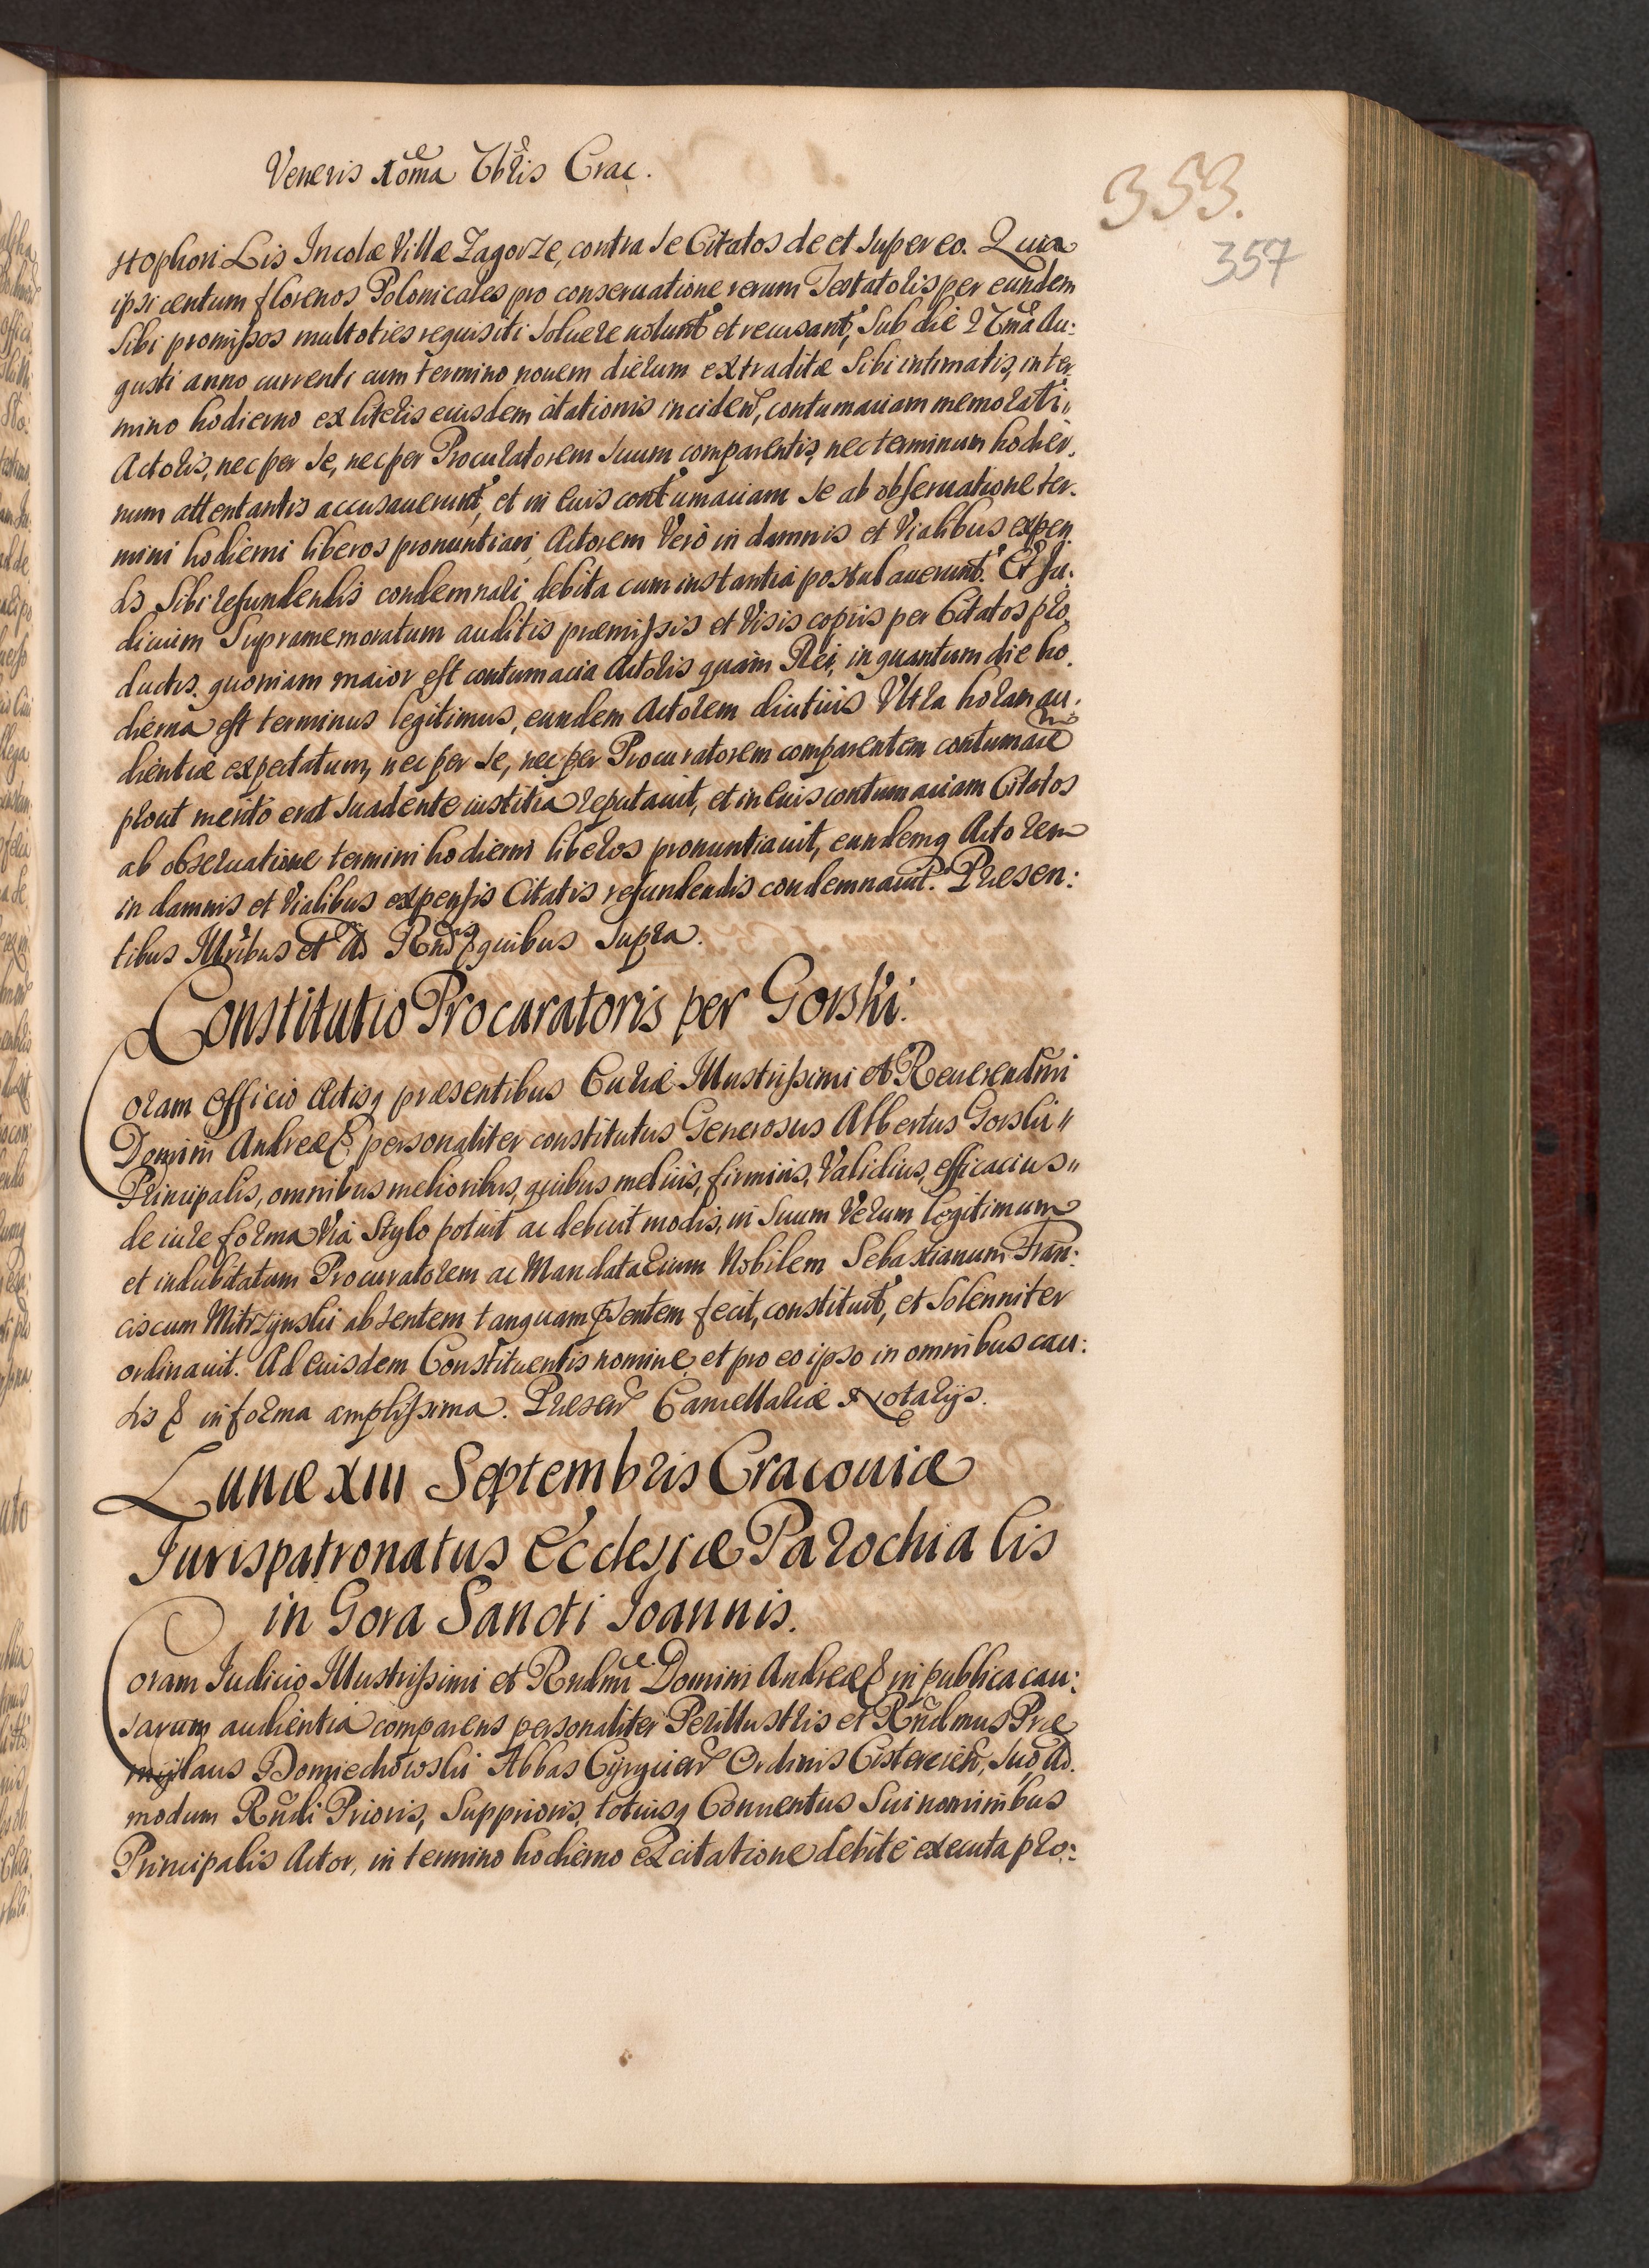 Veneris xoma 7bris Crac.
353.
357
stophori Lis Incolæ Villæ Zagorze, contra se Citatos de et super eo. Quia
ipsi centum florenos Polonicales pro conseruatione rerum Testatoris per eundem
sibi promissos multoties requisiti soluere nolunt et recusant, sub die 27ma Au:
gusti anno currenti cum termino nouem dierum extraditæ sibi intimatis, in ter
mino hodierno ex literis eiusdem citationis inciden, contumaciam memorati
Actoris, nec per se, nec per Procuratorem suum comparentis, nec terminum hodier.
num attentantis accusauerunt, et in euis contumaciam se ab obseruatione ter.
mini hodierni liberos pronuntiari, Actorem Verò in damnis et Vialibus expen
sis sibi refundendis condemnari debita cum instantia postulauerunt. Et Ju:
dicium Supramemoratum auditis præmissis et Visis copiis per Citatos pro.
ductis. quoniam maior est contumacia Actoris quàm Rei, in quantum die ho.
dierna est terminus legitimus, eundem Actorem diutiùs Vltra horam au.
dientiæ expectatum, nec per se, nec per Procuratorem comparentem contumacẽ
prout meritò erat suadente iustitia reputauit, et in euis contumaciam Citatos
ab obseruatione termini hodierni liberos pronuntiauit, eundemq Actorem
in damnis et Vialibus expensis Citatis refundendis condemnauit. Præsen:
tibus Illribus et Ad Rndis quibus supra.
Constitutio Procuratoris per Gorski.
Coram Officio Actisq præsentibus Curiæ Illustrissimi et Reuerendmi
Domini Andreæ & personaliter constitutus Generosus Albertus Gorski
Principalis, omnibus melioribus, quibus meliùs, firmiùs, Validiùs, efficaciùs
de iure forma Via Stylo potuit ac debuit modis, in suum Verum legitimum
et indubitatum Procuratorem ac Mandatarium Nobilem Sebastianum Fran:
ciscum Mitrzynski absentem tanquam psentem fecit, constituit, et solenniter
ordinauit. Ad euisdem Constituentis nomine et pro eo ipso in omnibus cau:
sis & in forma amplissima. Præsen Cancellariæ Notarijs.
Lunæ XIII Septembris Cracouiæ
Jurispatronatus Ecclesiæ Parochialis
in Gora Sancti Joannis.
Coram Judicio Illustrissimi et Rndmi Domini Andreæ & in publica cau:
sarum audientia comparens personaliter Perillustris et Rndmus Præ
mislaus Domiechowski Abbas Cyrycien Ordinis Cistercien, suo, Ad.
modum Rndi Prioris, Supprioris, totiusq Conuentus sui nominibus
Principalis Actor, in termino hodierno ex citatione debitè executa pro: